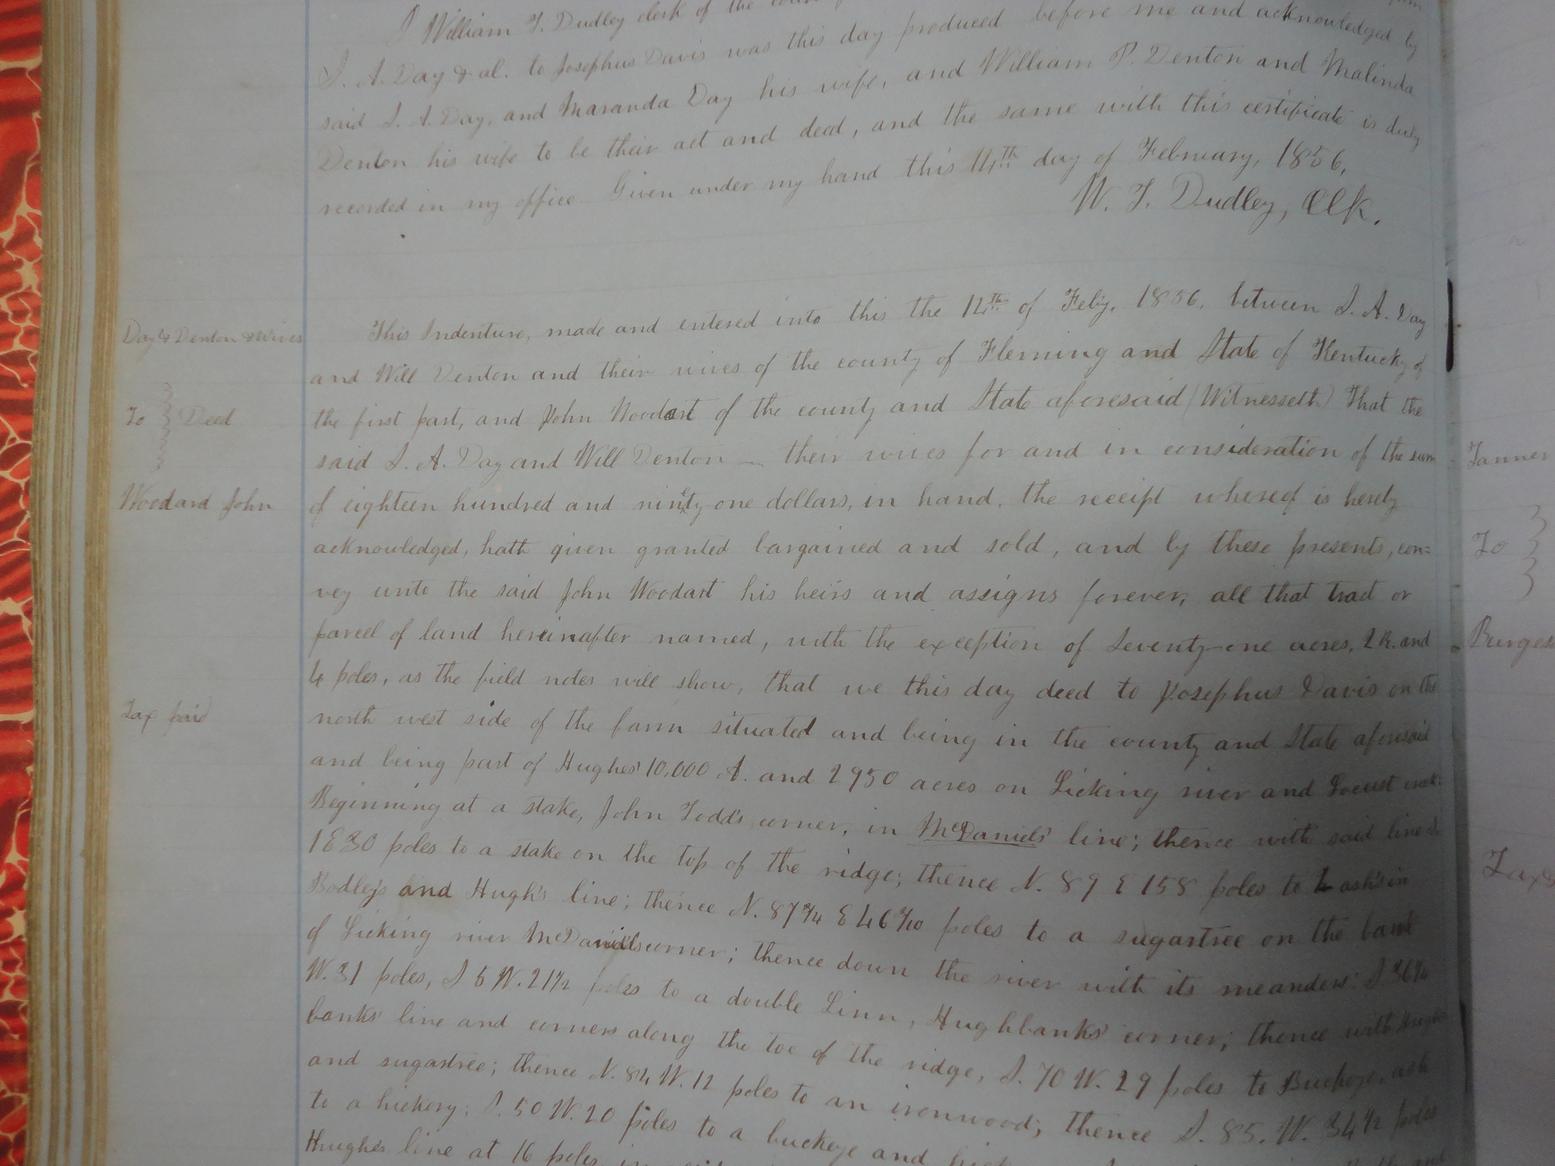 I William T. Dudley clerk of the
S. A. Day & al. to Josephus Davis was this day produced before me and acknowledged by
said S. A. Day, and Maranda Day his wife, and William P. Denton and Malinda
Denton his wife to be their act and deed, and the same with this certificate is duly
recorded in my office. Given under my hand this 14th day of February, 1856.
W. T. Dudley, Clk.
Day & Denton & Wives
To Deed
Woodard John
Tax paid
This Indenture, made and entered into this the 12th of Feby, 1856, between S. A. Day
and Will Denton and their wives of the county of Fleming and State of Kentucky of
the first part, and John Woodart of the county and State aforesaid (Witnesseth) That the
said S. A. Day and Will Denton — their wives for and in consideration of the sum
of eighteen hundred and ninety-one dollars, in hand, the receipt whereof is hereby
acknowledged, hath given granted bargained and sold, and by these presents, con=
vey unto the said John Woodart his heirs and assigns forever, all that tract or
parcel of land hereinafter named, with the exception of Seventy-one acres, 2 R. and
4 poles, as the field notes will show, that we this day deed to Josephus Davis on the
north west side of the farm situated and being in the county and State aforesaid
and being part of Hughes' 10,000 A. and 2950 acres on Licking river and Locust creek:
Beginning at a stake, John Todd's corner, in McDaniels' line; thence with said line S.
1 E 30 poles to a stake on the top of the ridge; thence N. 89 E 158 poles to 2 ash's in
Bodley's and Hugh's line; thence N. 87¾ E 46 poles to a sugartree on the bank
of Licking river McDaniels corner; thence down the river with its meanders: S
W. 31 poles, S 5 W. 21½ poles to a double Linn, Hughbanks' corner; thence with Hugh
banks' line and corners along the toe of the ridge, S. 70 W. 29 poles to Buckeye, ash
and sugartree; thence N. 84 W. 12 poles to an ironwood; thence S. 85. W. 34½ poles
to a hickory; S. 50 W. 20 poles to a buckeye and
Hughes line at 16 poles
Tanner
To
Burgess
Tax